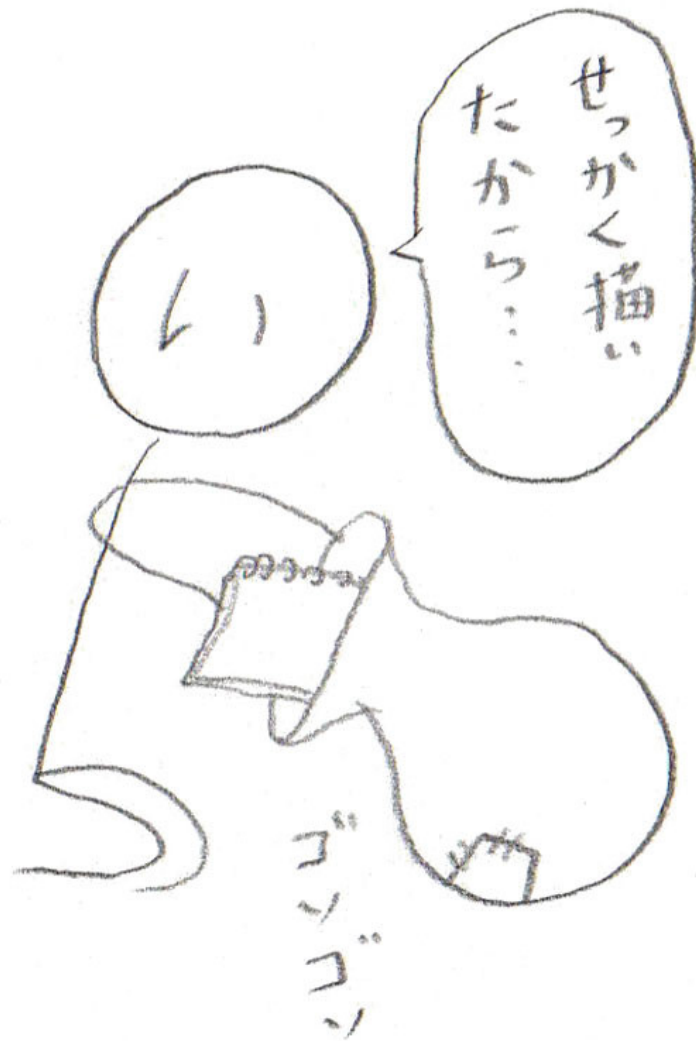 せっかく描い
たから…
ゴソゴソ